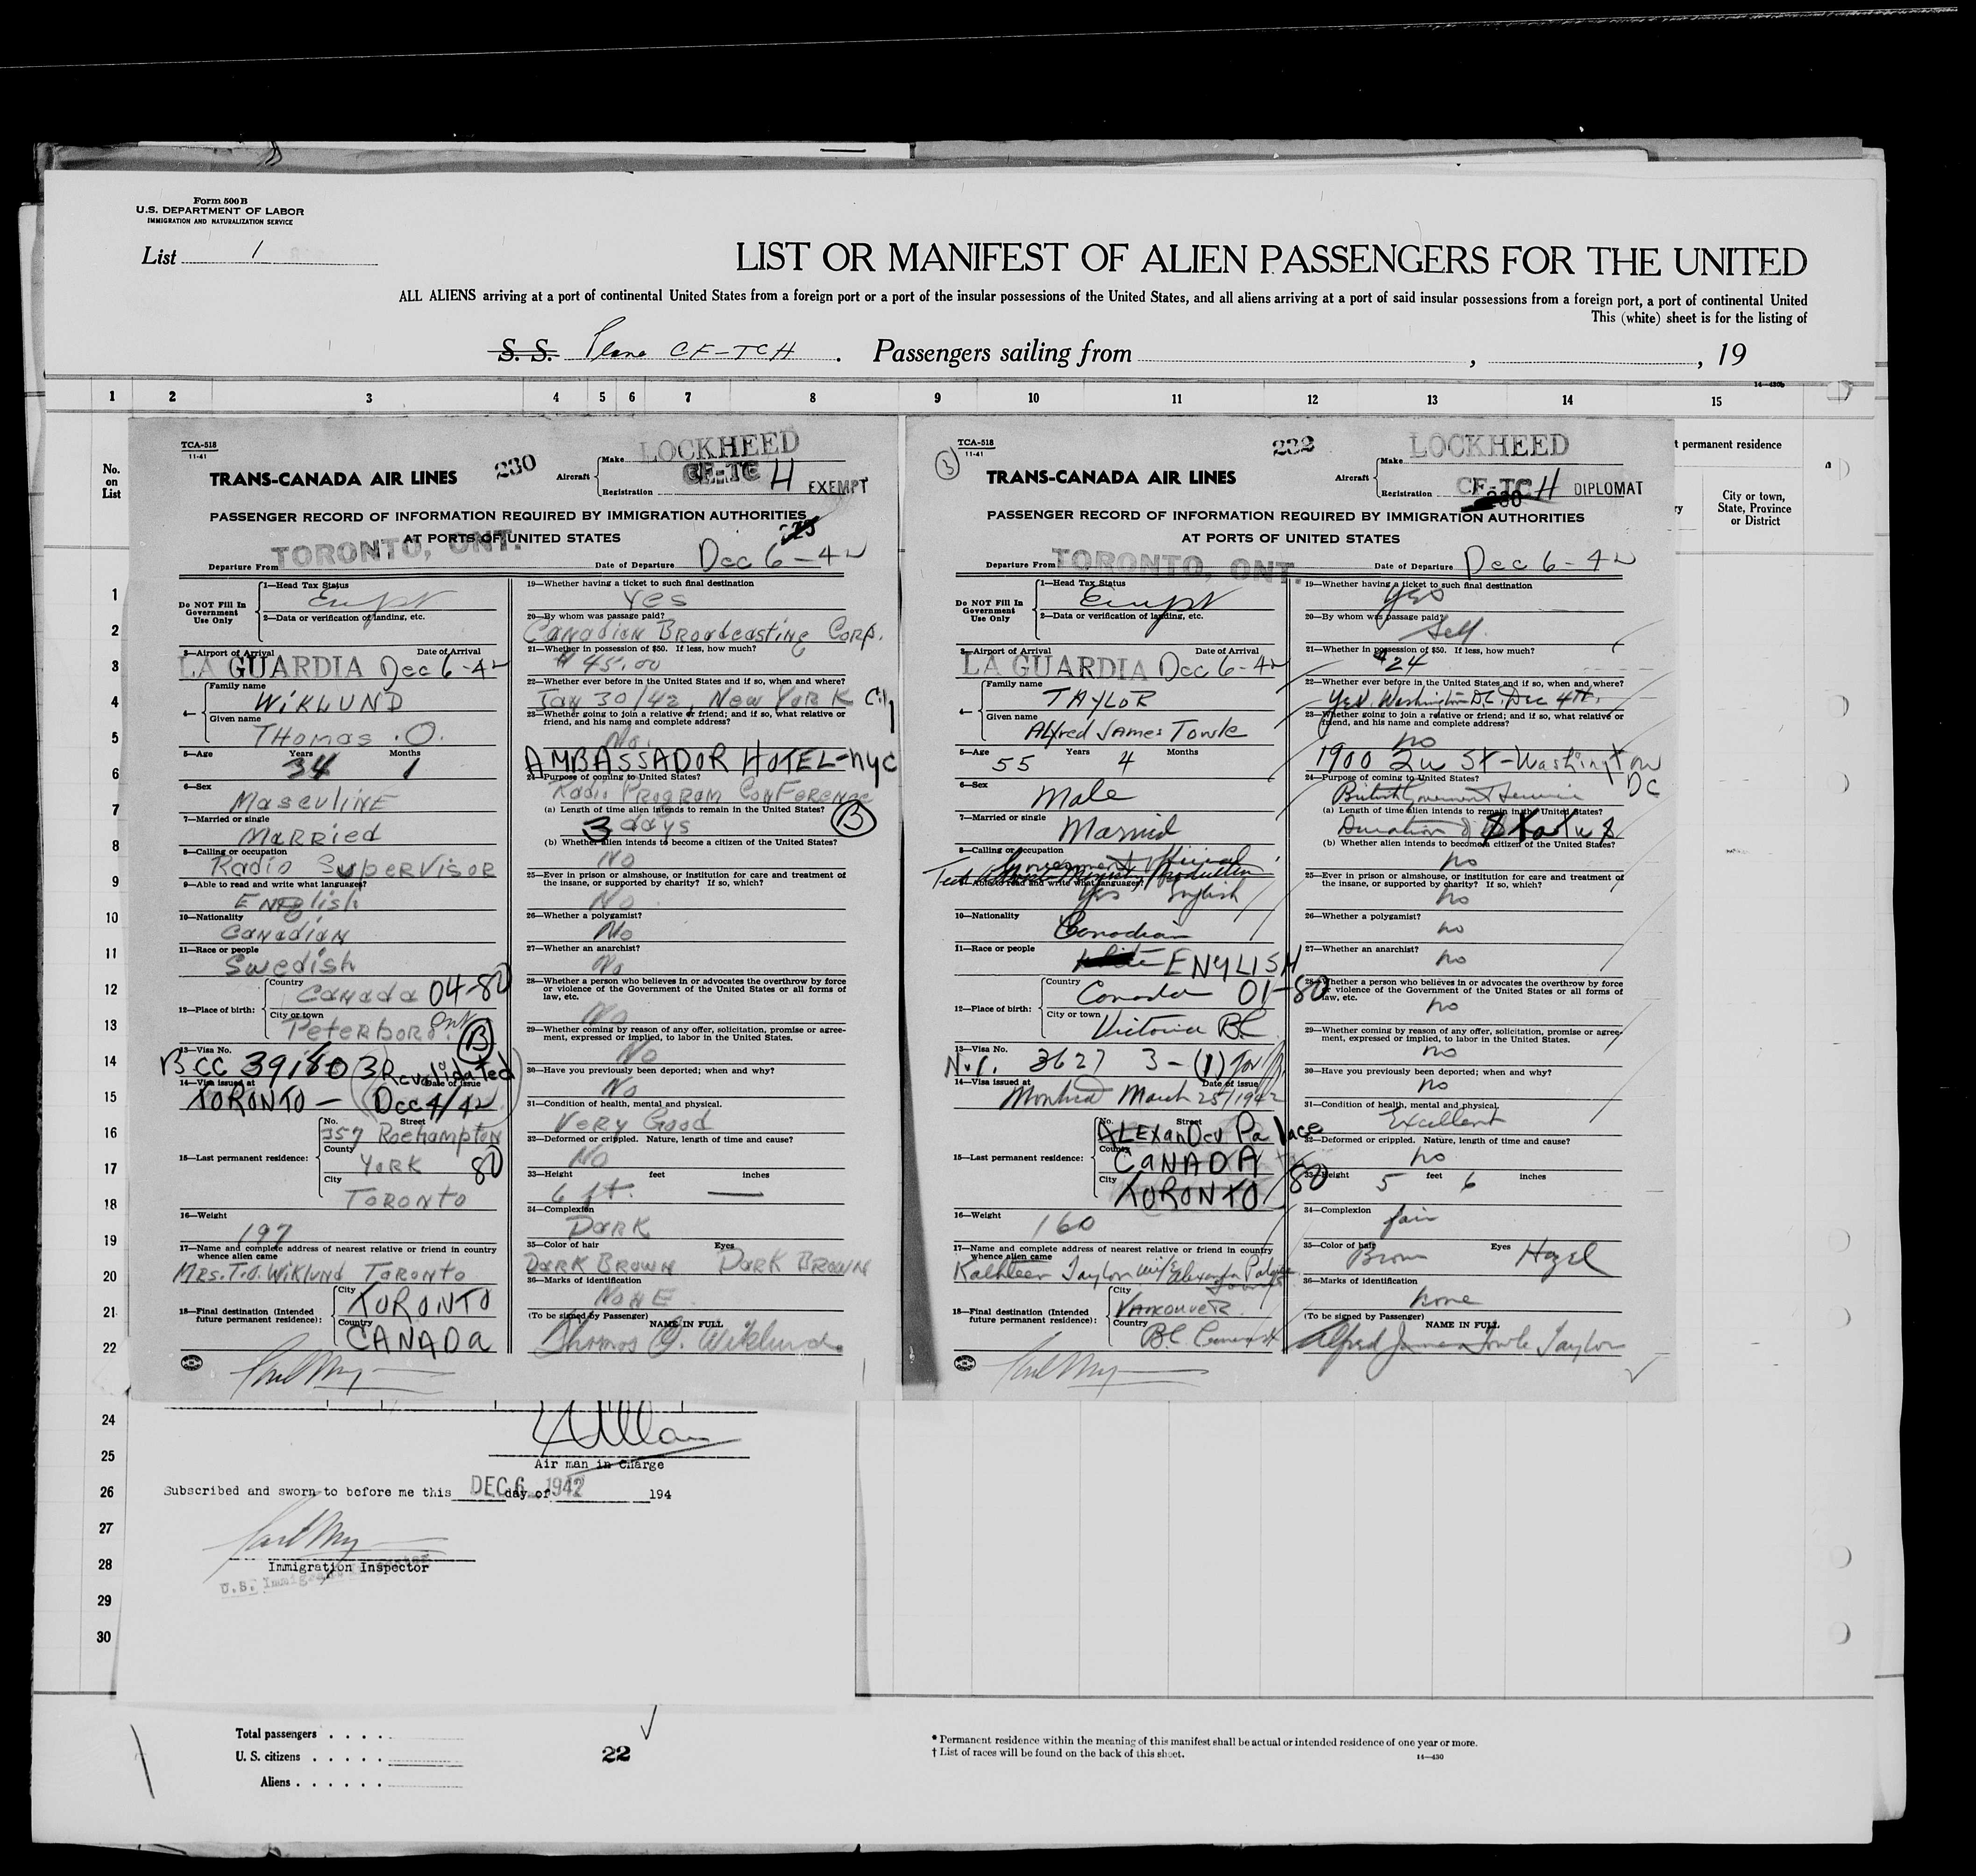 Form 500 B
U.S. DEPARTMENT OF LABOR
IMMIGRATION AND NATURALIZATION SERVICE
List 1
LIST OR MANIFEST OF ALIEN PASSENGERS FOR THE UNITED
ALL ALIENS arriving at a port of continental United States from a foreign port or a port of the insular possessions of the United States, and all aliens arriving at a port of said insular possessions from a foreign port, a port of continental United
This (white) sheet is for the listing of
S. S. Plane CF-TCH . Passengers sailing from , , 19
14—430b
1 2 3 4 5 6 7 8 9 10 11 12 13 14 15
No. on List
t permanent residence
City or town, State, Province or District
TCA-518
11-41
TRANS-CANADA AIR LINES
230
Aircraft
Make LOCKHEED
Registration CF-TC H
EXEMPT
PASSENGER RECORD OF INFORMATION REQUIRED BY IMMIGRATION AUTHORITIES
AT PORTS OF UNITED STATES
Departure From TORONTO, ONT.
Date of Departure Dec 6-42
Do NOT Fill In Government Use Only
1—Head Tax Status
Exempt
2—Data or verification of landing, etc.
3—Airport of Arrival Date of Arrival
LA GUARDIA Dec 6-42
4— Family name
WIKLUND
Given name
THOMAS .O.
5—Age Years Months
34 1
6—Sex
MASCULINE
7—Married or single
MARRIED
8—Calling or occupation
Radio Supervisor
9—Able to read and write what languages?
ENGlish
10—Nationality
Canadian
11—Race or people
Swedish
12—Place of birth:
Country
Canada 04-80
City or town
PETERBORO Ont.
B
13—Visa No.
BCC 39140 3 Revalidated
14—Visa issued at Date of issue
TORONTO — (Dec 4/42)
15—Last permanent residence:
No. Street
357 Roehampton
County
YORK 80
City
TORONTO
16—Weight
197
17—Name and complete address of nearest relative or friend in country whence alien came
MRS. T.O. WIKLUND TORONTO
18—Final destination (Intended future permanent residence):
City
TORONTO
Country
CANADA
19—Whether having a ticket to such final destination
Yes
20—By whom was passage paid?
Canadian Broadcasting Corp.
21—Whether in possession of $50. If less, how much?
$45.00
22—Whether ever before in the United States and if so, when and where?
Jan 30/42, New York City
23—Whether going to join a relative or friend; and if so, what relative or friend, and his name and complete address?
No.
AMBASSADOR HOTEL-nyc
24—Purpose of coming to United States?
Radio Program Conference
(a) Length of time alien intends to remain in the United States?
3 days
B
(b) Whether alien intends to become a citizen of the United States?
No
25—Ever in prison or almshouse, or institution for care and treatment of the insane, or supported by charity? If so, which?
No
26—Whether a polygamist?
No
27—Whether an anarchist?
No
28—Whether a person who believes in or advocates the overthrow by force or violence of the Government of the United States or all forms of law, etc.
No
29—Whether coming by reason of any offer, solicitation, promise or agreement, expressed or implied, to labor in the United States.
No
30—Have you previously been deported; when and why?
No
31—Condition of health, mental and physical.
Very Good
32—Deformed or crippled. Nature, length of time and cause?
No
33—Height feet inches
6 ft. —
34—Complexion
DARK
35—Color of hair Eyes
DARK BROWN DARK BROWN
36—Marks of identification
NONE
(To be signed by Passenger) NAME IN FULL
Thomas O. Wiklund
TCA-518
11-41
3
TRANS-CANADA AIR LINES
232
Aircraft
Make LOCKHEED
Registration CF-TC H
DIPLOMAT
PASSENGER RECORD OF INFORMATION REQUIRED BY IMMIGRATION AUTHORITIES
AT PORTS OF UNITED STATES
Departure From TORONTO, ONT.
Date of Departure Dec 6-42
Do NOT Fill In Government Use Only
1—Head Tax Status
Exempt
2—Data or verification of landing, etc.
3—Airport of Arrival Date of Arrival
LA GUARDIA Dec 6-42
4— Family name
TAYLOR
Given name
Alfred James Towle
5—Age Years Months
55 4
6—Sex
Male
7—Married or single
Married
8—Calling or occupation
Government Official
9—Able to read and write what languages?
Yes English
10—Nationality
Canadian
11—Race or people
ENGLISH
12—Place of birth:
Country
Canada 01-80
City or town
Victoria BC
13—Visa No.
N.I. 3627 3-(1)
14—Visa issued at Date of issue
Montreal March 25/1942
15—Last permanent residence:
No. Street
ALExanDer Palace
County
CANADA
City
TORONTO 80
16—Weight
160
17—Name and complete address of nearest relative or friend in country whence alien came
Kathleen Taylor wife Alexandra Palace
18—Final destination (Intended future permanent residence):
City
VANCOUVER
Country
B.C. Canada
19—Whether having a ticket to such final destination
Yes
20—By whom was passage paid?
Self.
21—Whether in possession of $50. If less, how much?
$24
22—Whether ever before in the United States and if so, when and where?
Yes. Washington D.C. Dec 4th.
23—Whether going to join a relative or friend; and if so, what relative or friend, and his name and complete address?
no
1900 Que St-Washington DC
24—Purpose of coming to United States?
British Government Service
(a) Length of time alien intends to remain in the United States?
Duration of Status
(b) Whether alien intends to become a citizen of the United States?
no
25—Ever in prison or almshouse, or institution for care and treatment of the insane, or supported by charity? If so, which?
no
26—Whether a polygamist?
no
27—Whether an anarchist?
no
28—Whether a person who believes in or advocates the overthrow by force or violence of the Government of the United States or all forms of law, etc.
no
29—Whether coming by reason of any offer, solicitation, promise or agreement, expressed or implied, to labor in the United States.
no
30—Have you previously been deported; when and why?
no
31—Condition of health, mental and physical.
Excellent
32—Deformed or crippled. Nature, length of time and cause?
no
33—Height 5 feet 6 inches
34—Complexion
fair
35—Color of hair Eyes
Brown Hazel
36—Marks of identification
none
(To be signed by Passenger) NAME IN FULL
Alfred James Towle Taylor
1 2 3 4 5 6 7 8 9 10 11 12 13 14 15 16 17 18 19 20 21 22 24 25 26 27 28 29 30
Air man in Charge
Subscribed and sworn to before me this DEC 6 1942 day of 194
Immigration Inspector
U.S. Immigrant Inspector
Total passengers . . . .
U. S. citizens . . . . .
Aliens . . . . . .
22
* Permanent residence within the meaning of this manifest shall be actual or intended residence of one year or more.
† List of races will be found on the back of this sheet.
14—430